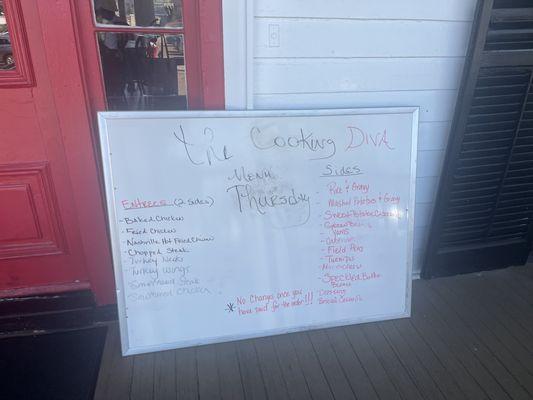 the Cooking Diva
Menu
Thursday
Entrees (2 Sides)
- Baked Chicken
- Fried Chicken
- Nashville Hot Fried Chicken
- Chopped Steak
- Turkey Necks
- Turkey Wings
- Smothered Steak
- Smothered Chicken
Sides
- Rice & Gravy
- Mashed Potatoes & Gravy
- Sweet Potato
- Green Beans
- Yams
- Cabbage
- Field Peas
- Turnips
- Speckled Butter
Beans
* No Changes once you
have paid for the order!!!